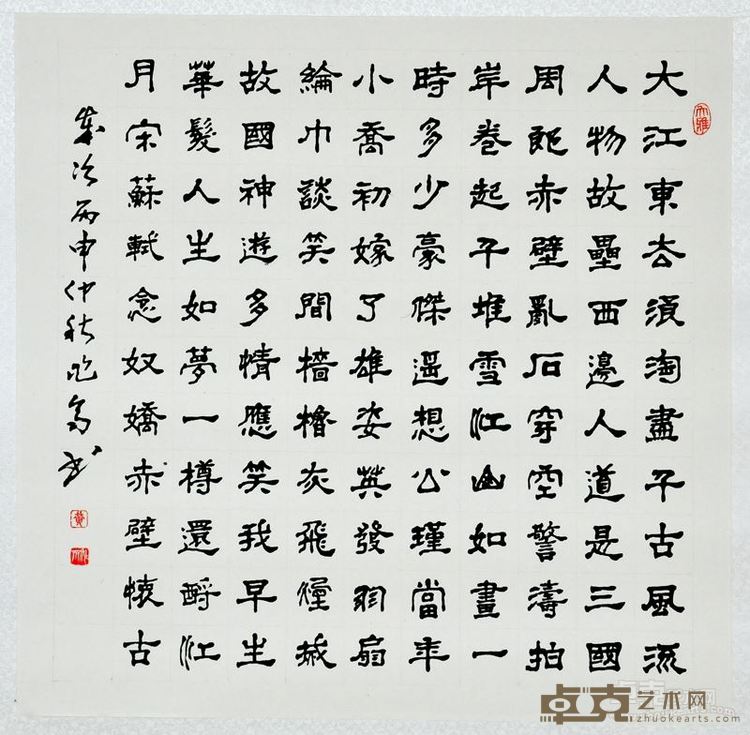 大雅
大江東去浪淘盡千古風流
人物故壘西邊人道是三國
周郎赤壁亂石穿空驚濤拍
岸卷起千堆雪江山如畫一
時多少豪傑遥想公瑾當年
小喬初嫁了雄姿英發羽扇
綸巾談笑間檣櫓灰飛煙滅
故國神遊多情應笑我早生
華髮人生如夢一樽還酹江
月宋蘇軾念奴嬌赤壁懷古
歲次丙申仲秋書
卓克艺术网
zhuokearts.com